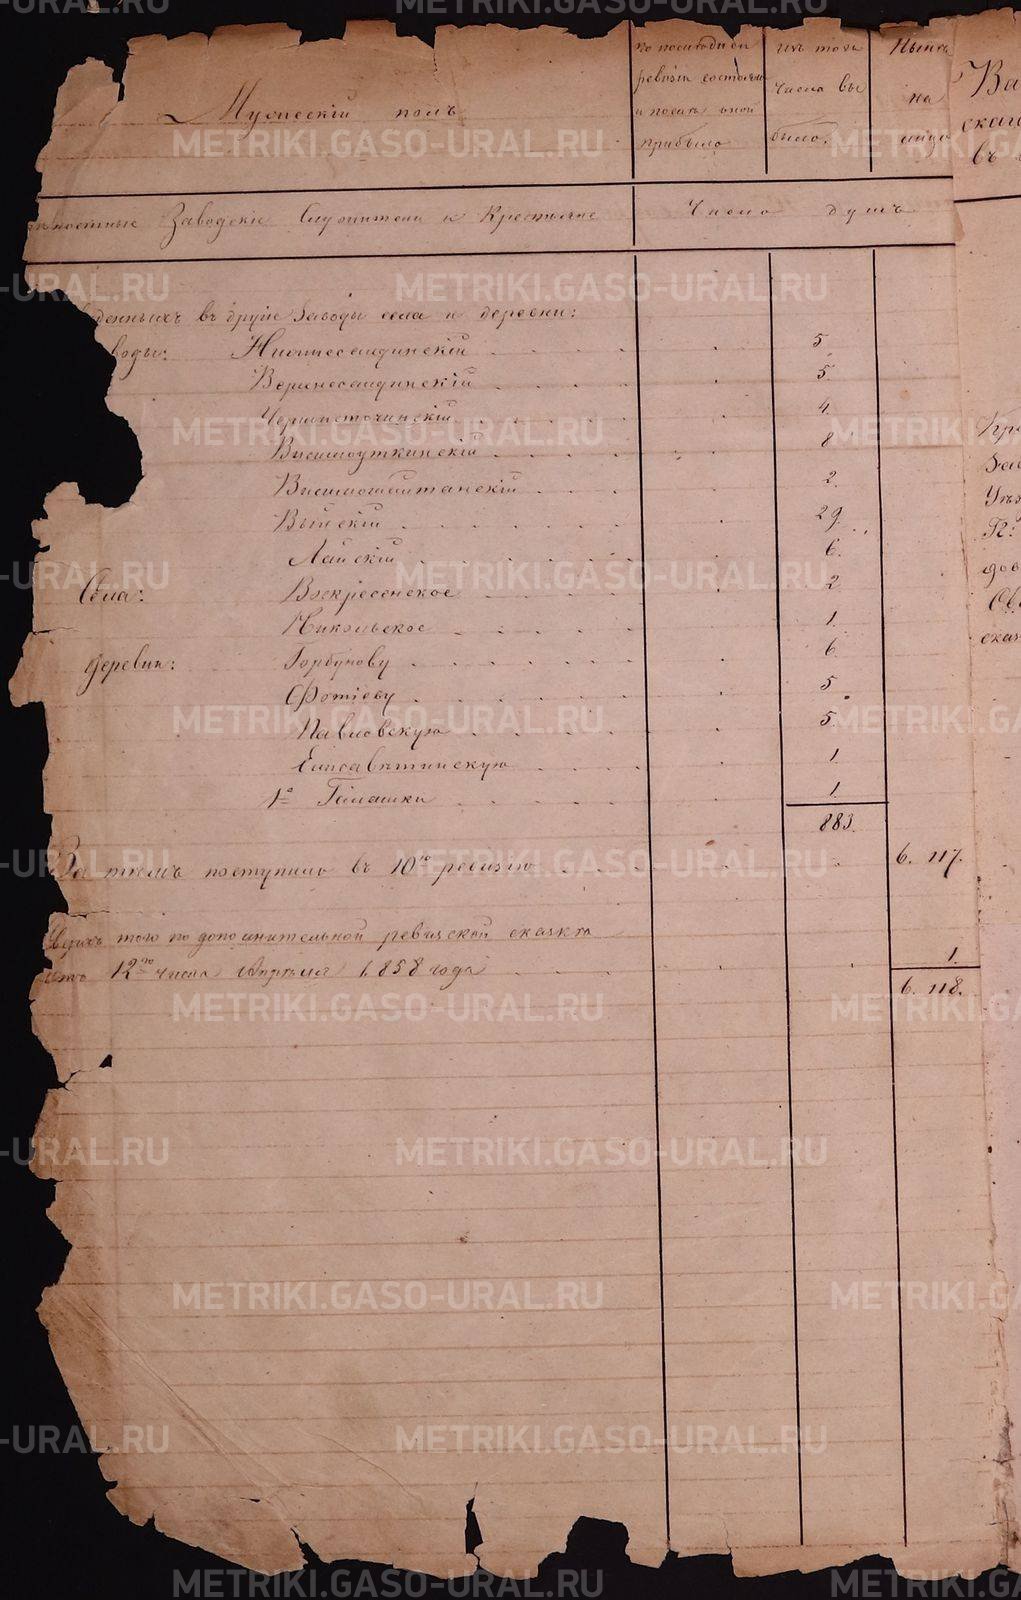 Мужескій полъ
по последней
ревизіи состояло
и после оной
прибыло
изъ того
числа вы
было.
Нынѣ
на
лицо
Заводскіе Служители и Крестьяне
Число душъ
денныхъ въ другіе заводы села и деревни:
воды: Нижнесалдинскій 5.
Верхнесалдинскій 5.
Черноисточинскій 4.
Висимоуткинскій 8
Висимошайтанскій 2.
Выйскій 29.
Лайскій 6.
Села: Воскресенское 2
Никольское 1.
Деревни: Горбунову 6.
Фотіеву 5
Павловскую 5.
Елисаветинскую 1
1ю Галашки 1.
883.
За тѣмъ поступило въ 10ю ревизію 6.117.
сверхъ того по дополнительной ревизской сказкѣ
12го числа Апрѣля 1858 года 1.
6.118.
METRIKI.GASO-URAL.RU